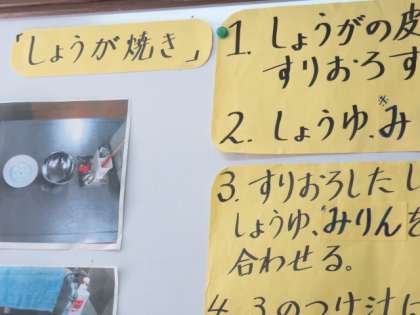 「しょうが焼き」
1. しょうがの皮
すりおろす
2. しょうゆ、*み
3. すりおろした し
しょうゆ、*みりんを
合わせる。
4. 3のつけ汁に